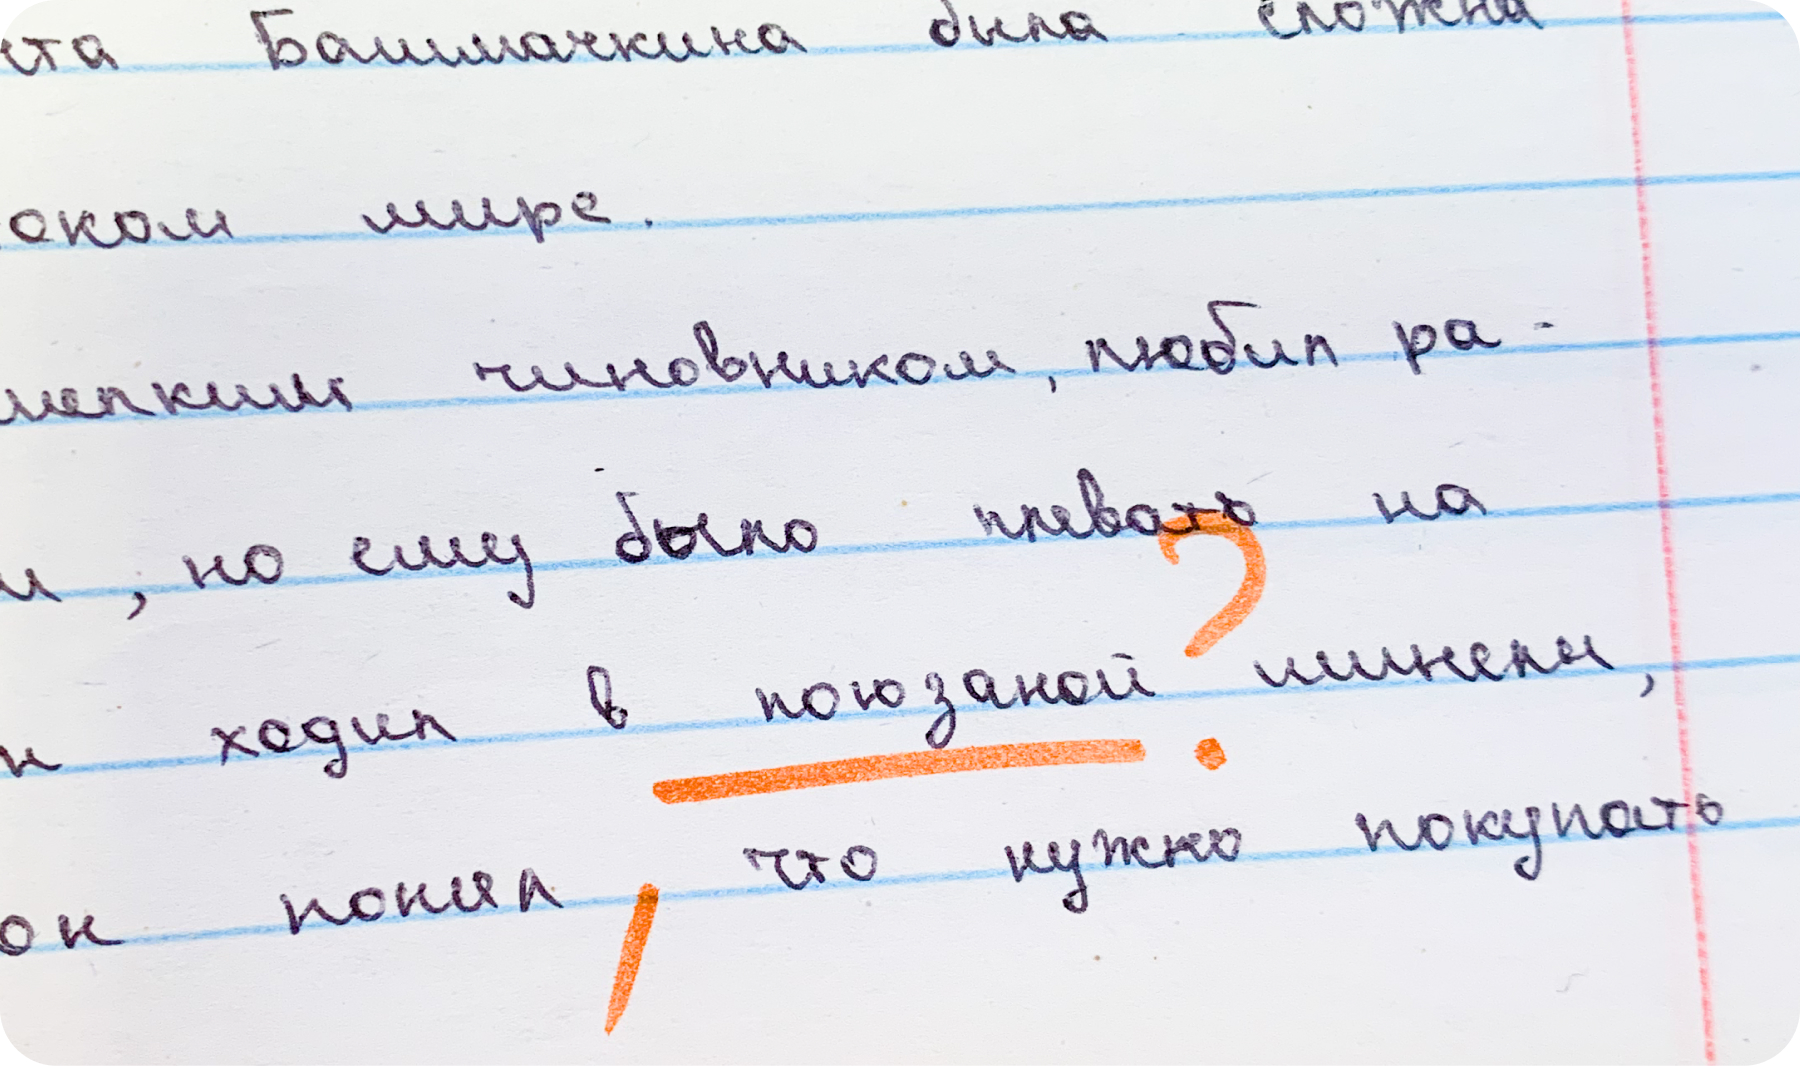 ста Башмачкина была сложна
соком мире.
мелким чиновником, любил ра-
м, но ему было плевать на
н ходил в поюзаной шинели,
он понял, что нужно покупать